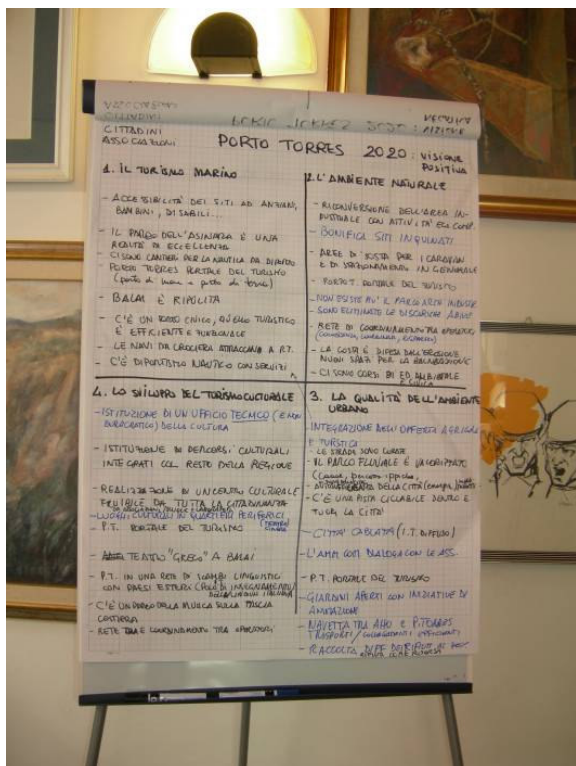 CITTADINI
CITTADINI
ASSOCIAZIONI
PORTO TORRES 2020: VISIONE
POSITIVA
1. IL TURISMO MARINO
- ACCESSIBILITÀ DEI SITI AD ANZIANI,
BAMBINI, DISABILI...
- IL PARCO DELL'ASINARA È UNA
REALTÀ DI ECCELLENZA
- CI SONO CANTIERI PER LA NAUTICA DA DIPORTO
PORTO TORRES PORTALE DEL TURISMO
(porta di mare e porta di terra)
- BALAI È RIPULITA
- C'È UN PORTO CIVICO, QUELLO TURISTICO
È EFFICIENTE E FUNZIONALE
- LE NAVI DA CROCIERA ATTRACCANO A P.T.
- C'È DIPORTISMO NAUTICO CON SERVIZI
2. L'AMBIENTE NATURALE
- RICONVERSIONE DELL'AREA IN-
DUSTRIALE CON ATTIVITÀ ECO COMP.
- BONIFICA SITI INQUINATI
- AREE DI SOSTA PER I CARAVAN
E DI STAZIONAMENTO IN GENERALE
- PORTO T. PORTALE DEL TURISMO
- NON ESISTE PIÙ IL PARCO
- SONO ELIMINATE LE DISCARICHE ABUSIVE
- RETE DI COORDINAMENTO TRA OPERATORI
- LA COSTA È DIFESA DALL'EROSIONE
NUOVI SPAZI PER LA BALNEAZIONE
- CI SONO CORSI DI ED. AMBIENTALE
E CIVICA
4. LO SVILUPPO DEL TURISMO CULTURALE
- ISTITUZIONE DI UN UFFICIO TECNICO (E NON
BUROCRATICO) DELLA CULTURA
- ISTITUZIONE DI PERCORSI CULTURALI
INTEGRATI COL RESTO DELLA REGIONE
- REALIZZAZIONE DI UN CENTRO CULTURALE
FRUIBILE DA TUTTA LA CITTADINANZA
- LUOGHI CULTURALI IN QUARTIERI PERIFERICI
- P.T. PORTALE DEL TURISMO
- TEATRO "GRECO" A BALAI
- P.T. IN UNA RETE DI SCAMBI LINGUISTICI
CON PAESI ESTERI (POLO DI INSEGNAMENTO)
DELLA LINGUA ITALIANA
- C'È UN PARCO DELLA MUSICA SULLA FASCIA
COSTIERA
- RETE COORDINAMENTO TRA OPERATORI
3. LA QUALITÀ DELL'AMBIENTE
URBANO
INTEGRAZIONE DELL'OFFERTA AGRICOLA
E TURISTICA
- LE STRADE SONO CURATE
- IL PARCO FLUVIALE È VALORIZZATO
DELLA CITTÀ
- C'È UNA PISTA CICLABILE DENTRO E
FUORI LA CITTÀ
- CITTÀ CABLATA (I.T. DIFFUSO)
- L'AMM COM DIALOGA CON LE ASS.
- P.T. PORTALE DEL TURISMO
- GIARDINI APERTI CON INIZIATIVE DI
ANIMAZIONE
- NAVETTA TRA AHO E P. TORRES
TRASPORTI / COLLEGAMENTI EFFICIENTI
- RACCOLTA DIFF DEI RIFIUTI